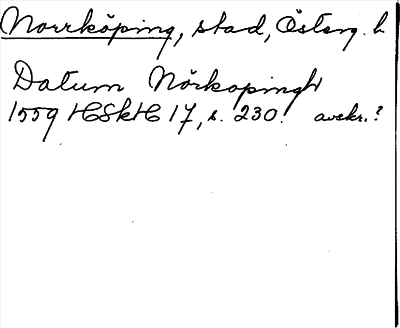 Norrköping, stad, Österg. l.
Datum Nörkopingh
1559 HSkH 17, s. 230. avskr.?